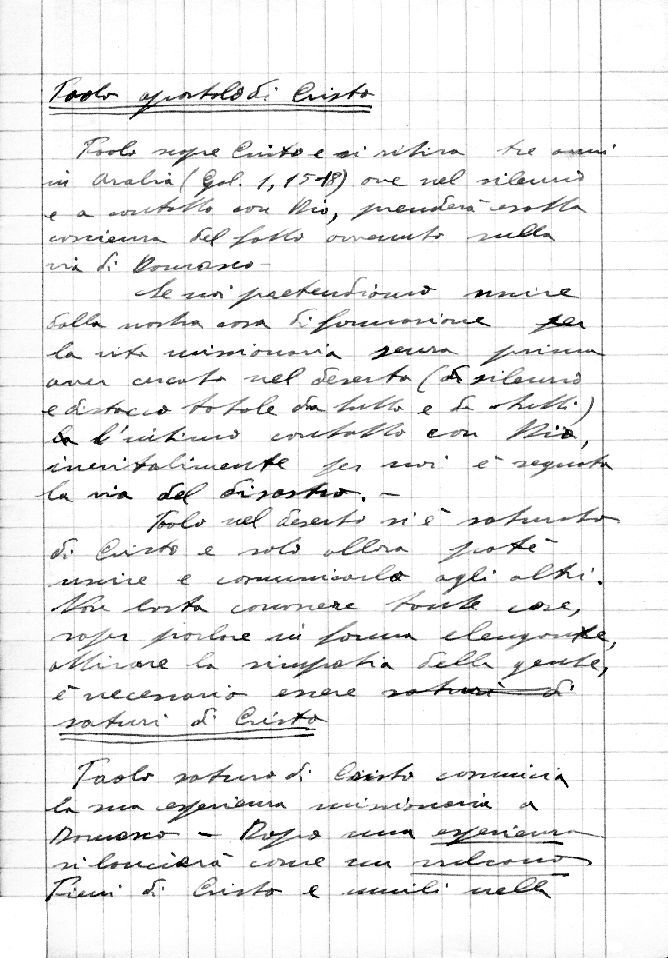 Paolo apostolo di Cristo
Paolo segue Cristo e si ritira tre anni
in Arabia (Gal. 1, 15-18) ove nel silenzio
e a contatto con Dio, prenderà esatta
coscienza del fatto avvenuto sulla
via di Damasco -
Se noi pretendiamo uscire
dalla nostra casa di formazione per
la vita missionaria senza prima
aver cercato nel deserto (di silenzio
e distacco totale da tutto e da tutti)
l'intimo contatto con Dio,
inevitabilmente per noi è segnata
la via del disastro. -
Paolo nel deserto si è saturato
di Cristo e solo allora poté
uscire e comunicarlo agli altri.
Non basta conoscere tante cose,
saper parlare in forma elengante,
attirare la simpatia della gente,
è necessario essere saturi di
saturi di Cristo
Paolo saturo di Cristo comincia
la sua esperienza missionaria a
Damasco - Dopo una esperienza
si lancierà come un vulcano
Pieni di Cristo e umili nella